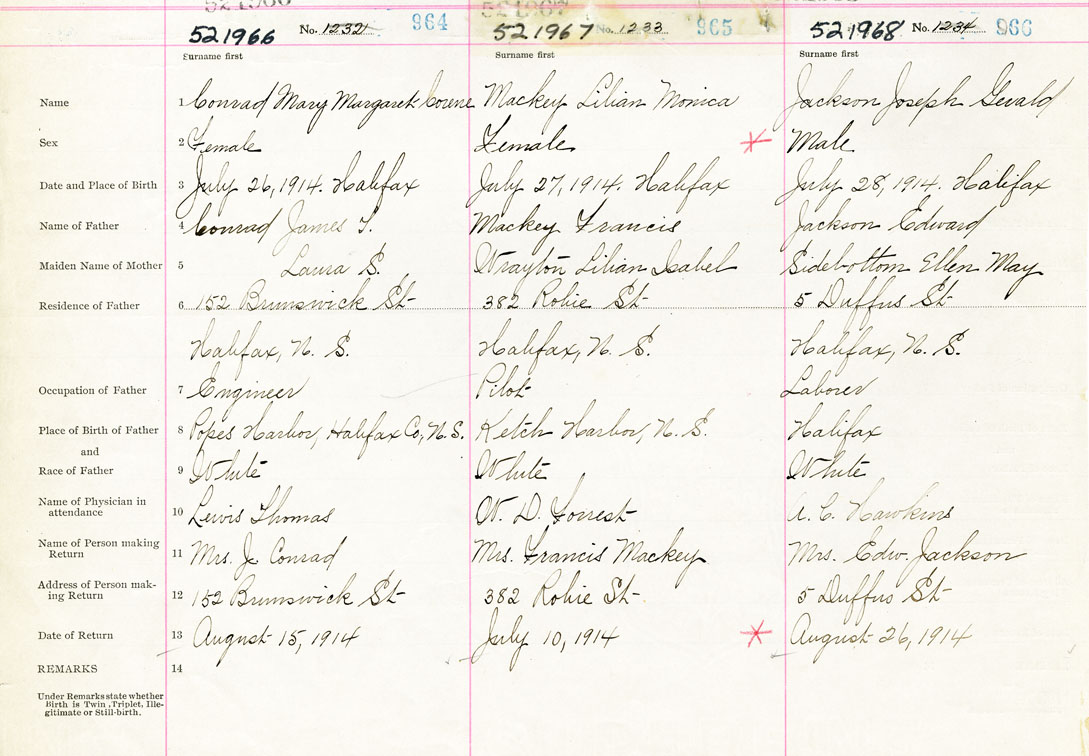 521966 No. 1232 964 521967 No. 1233 965 521968 No. 1234 966
Surname first Surname first Surname first
Name 1 Conrad Mary Margaret Corene Mackey Lilian Monica Jackson Joseph Gerald
Sex 2 Female Female Male
Date and Place of Birth 3 July 26, 1914. Halifax July 27, 1914. Halifax July 28, 1914. Halifax
Name of Father 4 Conrad James T. Mackey Francis Jackson Edward
Maiden Name of Mother 5 Laura S. Wrayton Lilian Isabel Sidebottom Ellen May
Residence of Father 6 152 Brunswick St 382 Robie St 5 Duffus St
Halifax, N. S. Halifax, N. S. Halifax, N. S.
Occupation of Father 7 Engineer Pilot Laborer
Place of Birth of Father 8 Popes Harbor, Halifax Co, N.S. Ketch Harbor, N. S. Halifax
and
Race of Father 9 White White White
Name of Physician in
attendance 10 Lewis Thomas W. D. Forrest A. C. Hawkins
Name of Person making
Return 11 Mrs. J. Conrad Mrs. Francis Mackey Mrs. Edw. Jackson
Address of Person mak-
ing Return 12 152 Brunswick St 382 Robie St. 5 Duffus St
Date of Return 13 August 15, 1914 July 10, 1914 August 26, 1914
REMARKS 14
Under Remarks state whether
Birth is Twin, Triplet, Ille-
gitimate or Still-birth.